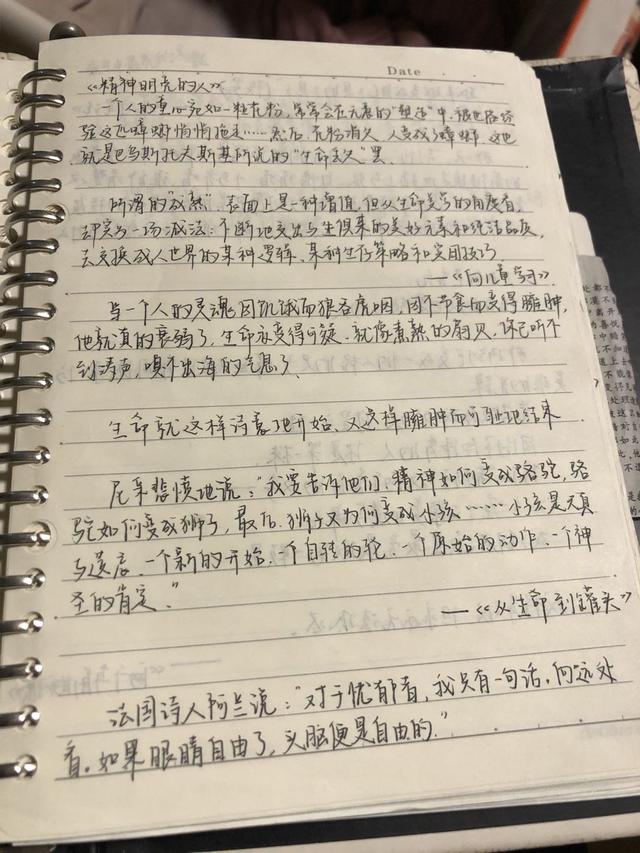 Date
《精神明亮的人》
一个人的童心宛如一粒花粉，常常会在无意的“塑造”中，被世俗经
验这匹蟑螂悄悄拖走……然后，花粉消失，人变成了蟑螂。这也
就是巴乌斯托夫斯基所说的“生命丢失”罢
所谓的“成熟”，表面上是一种增值，但从生命美学的角度看，
却实为一场减法：不断地交出与生俱来的美好元素和纯洁品质，
去交换成人世界的某种逻辑、某种生存策略和实用技巧
——《向儿童学习》
当一个人的灵魂因饥饿而狼吞虎咽，因不节食而变得臃肿，
他就真的衰弱了，生命亦变得可疑、就像煮熟的扇贝，你已听不
到涛声，嗅不出海的气息了
生命就这样诗意地开始、又这样臃肿而可耻地结束
尼采悲愤地说：“我要告诉他们，精神如何变成骆驼，骆
驼如何变成狮子，最后，狮子又为何变成小孩……小孩是天真
与遗忘、一个新的开始、一个自转的轮、一个原始的动作、一个神
圣的肯定。”
——《从生命到罐头》
法国诗人阿兰说：“对于忧郁者，我只有一句话，向远处
看。如果眼睛自由了，头脑便是自由的.”